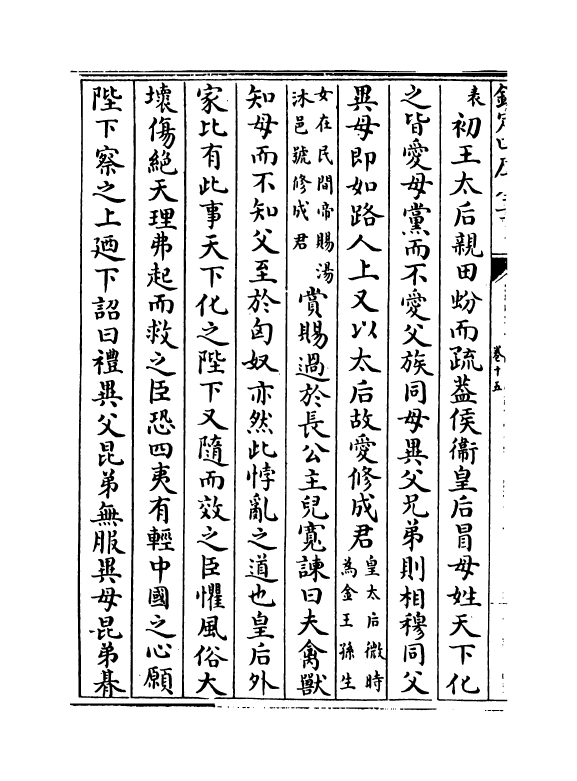 表初王太后親田蚡而疏蓋侯衞皇后冒母姓天下化
之皆愛母黨而不愛父族同母異父兄弟則相穆同父
異母即如路人上又以太后故愛修成君皇太后微時
為金王孫生
女在民間帝賜湯
沐邑號修成君賞賜過於長公主兒寛諫曰夫禽獸
知母而不知父至於匈奴亦然此悖亂之道也皇后外
家比有此事天下化之陛下又隨而效之臣懼風俗大
壞傷絶天理弗起而救之臣恐四夷有輕中國之心願
陛下察之上廼下詔曰禮異父昆弟無服異母昆弟朞
卷十五